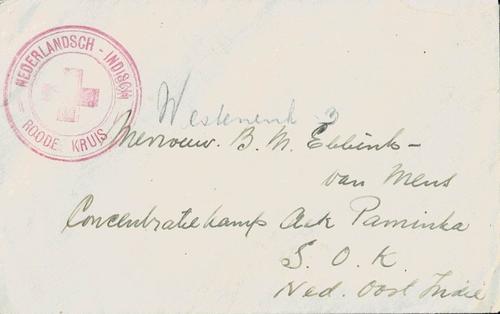 NEDERLANDSCH - INDISCH
ROODE KRUIS
Westenenk 3
Mevrouw. B. M. Ebbink-
van Mens
Concentratiekamp Aek Paminka
S. O. K.
Ned. Oost Indië